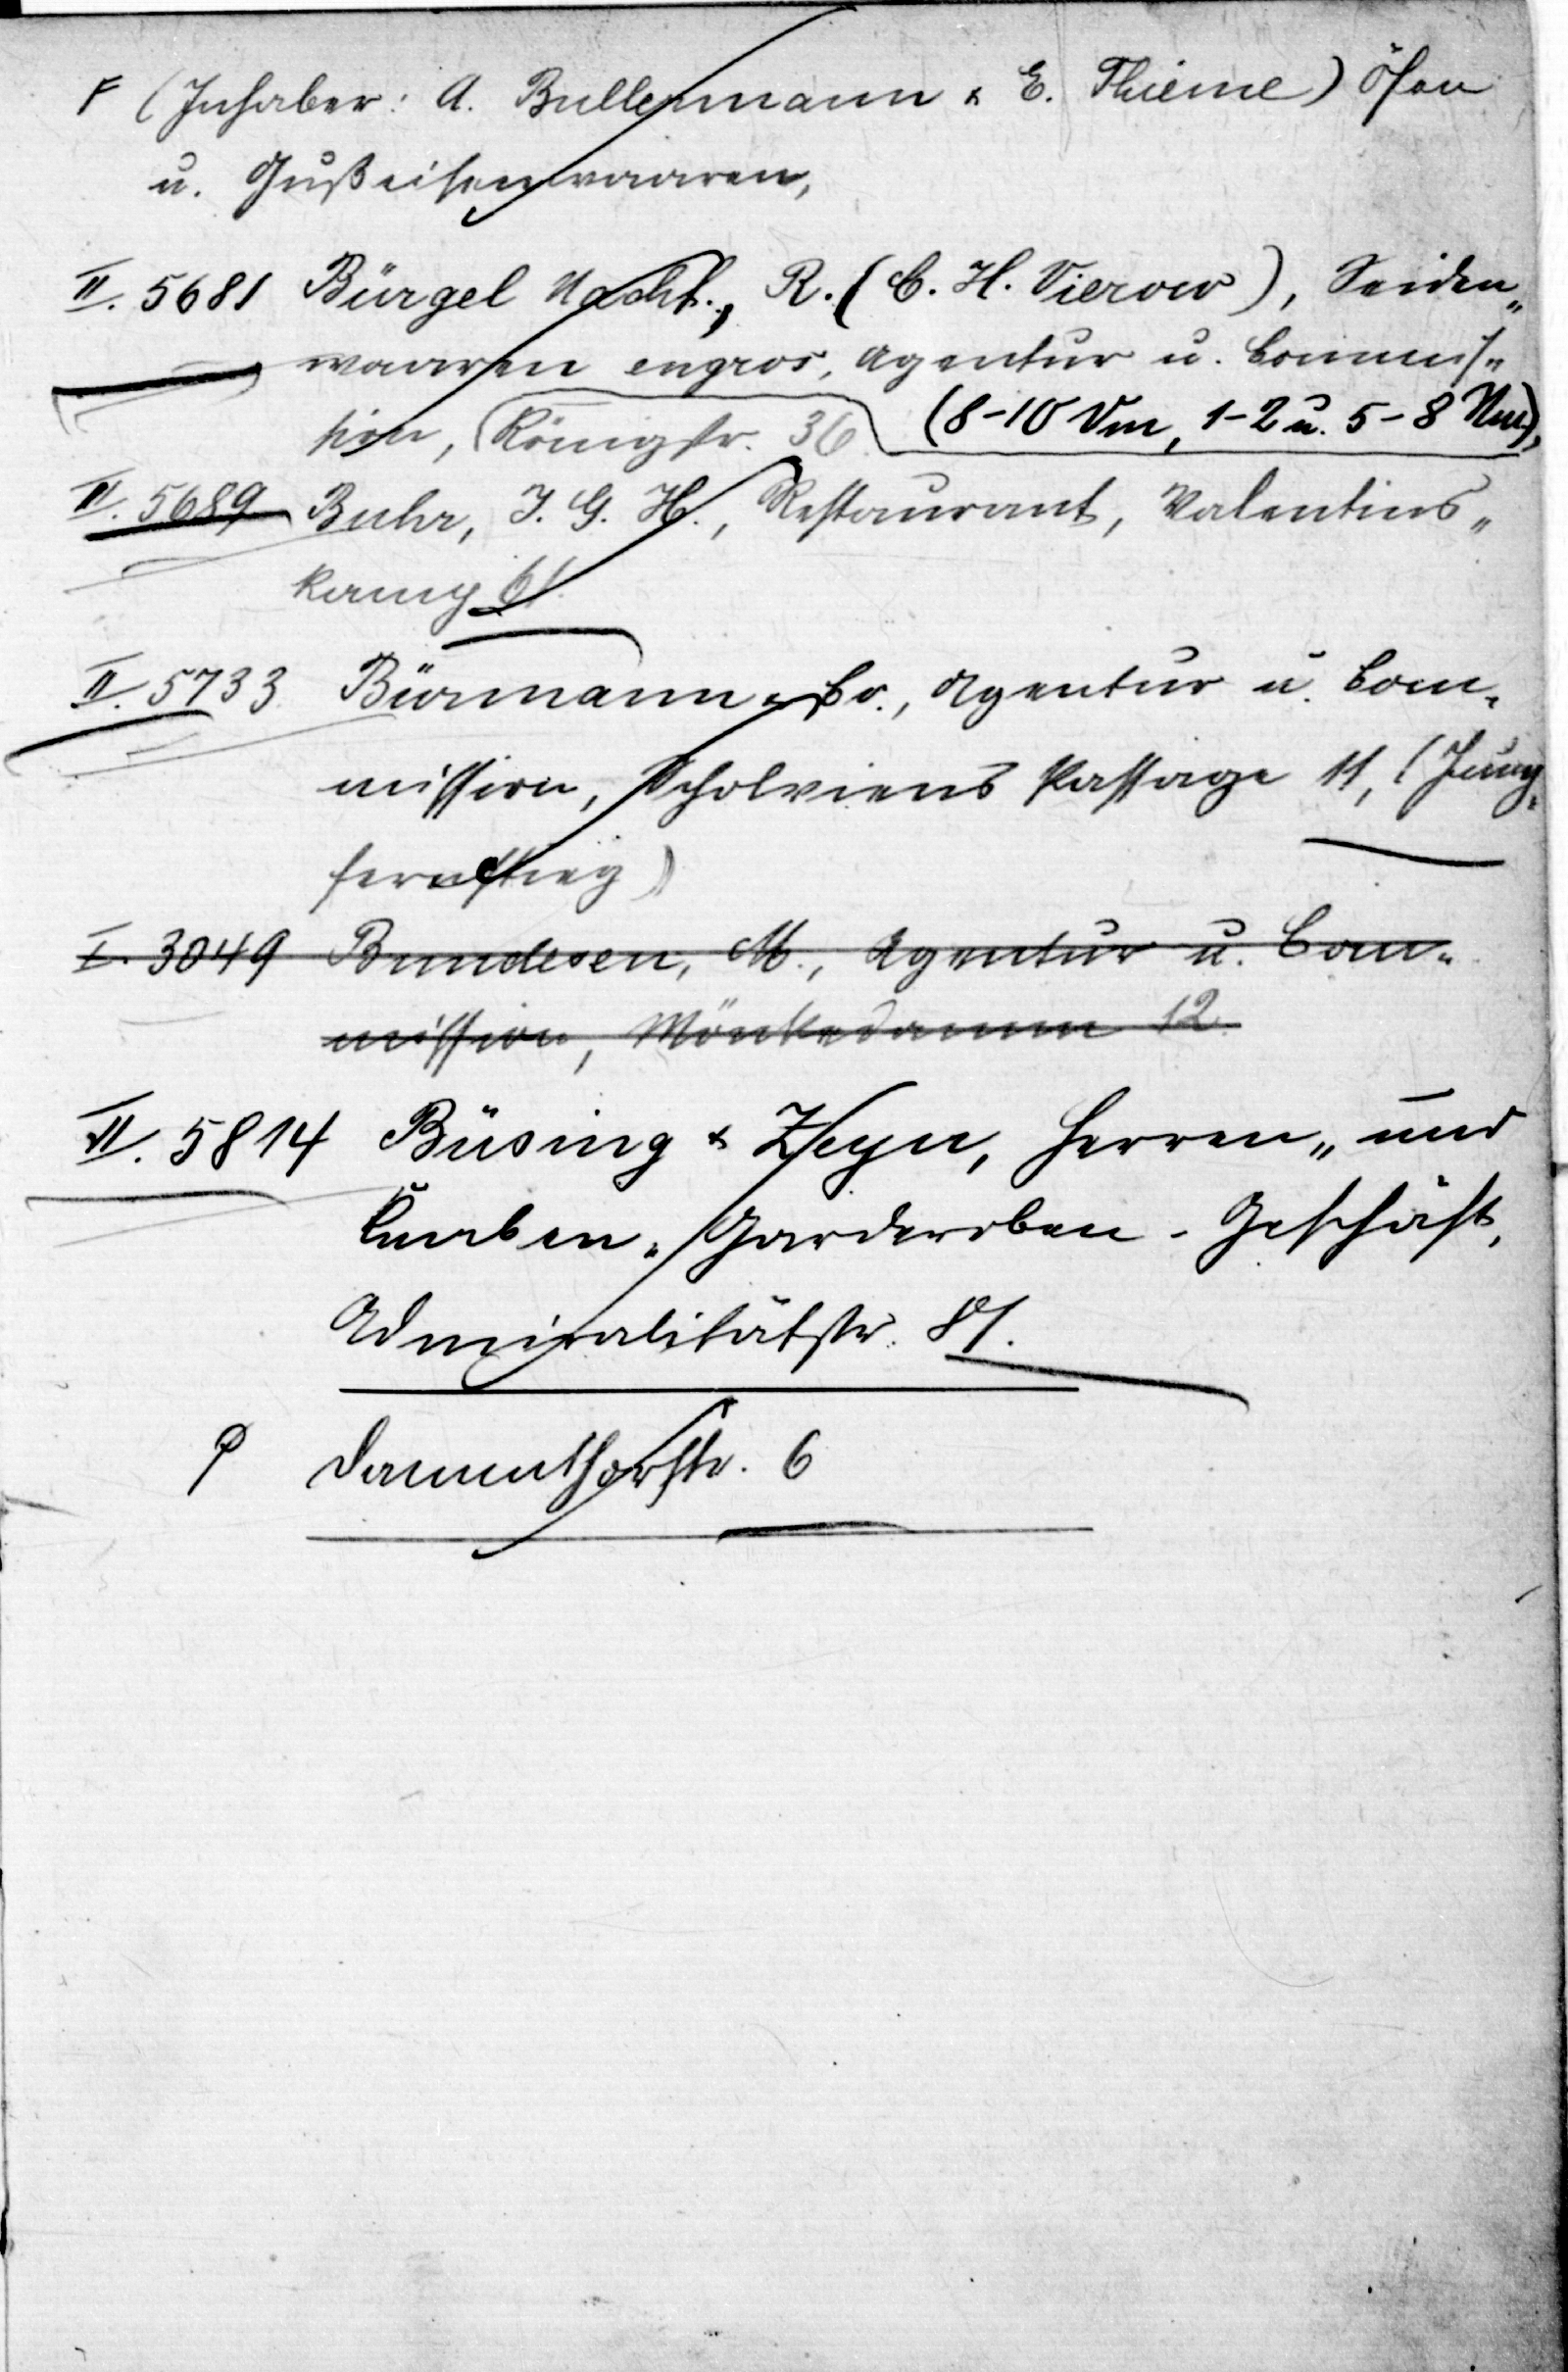 F (Inhaber: A. Bullermann & E. Thieme) Öfen
u. Gußeisenwaaren,
II. 5681 Bürgel Nachf., R. (C. H. Vierow), Seiden„
waaren engros, Agentur u. Commis„
sion, Königstr. 36 (8-10 Vm, 1-2 u. 5-8 Nm),
II. 5689 Buhr, J. G. H., Restaurant, Valentins„
kamp 61.
II. 5733 Bürmann & Co., Agentur u. Com„
mission, Scholviens Passage 11, (Jung„
fernstieg)
I. 3049 Bundesen, M., Agentur u. Com„
mission, Mönkedamm 12.
II. 5814 Büsing & Zeyn, Herren„ und
Knaben„ Garderoben-Geschäft,
Admiralitätstr. 81.
Dammthorstr. 6